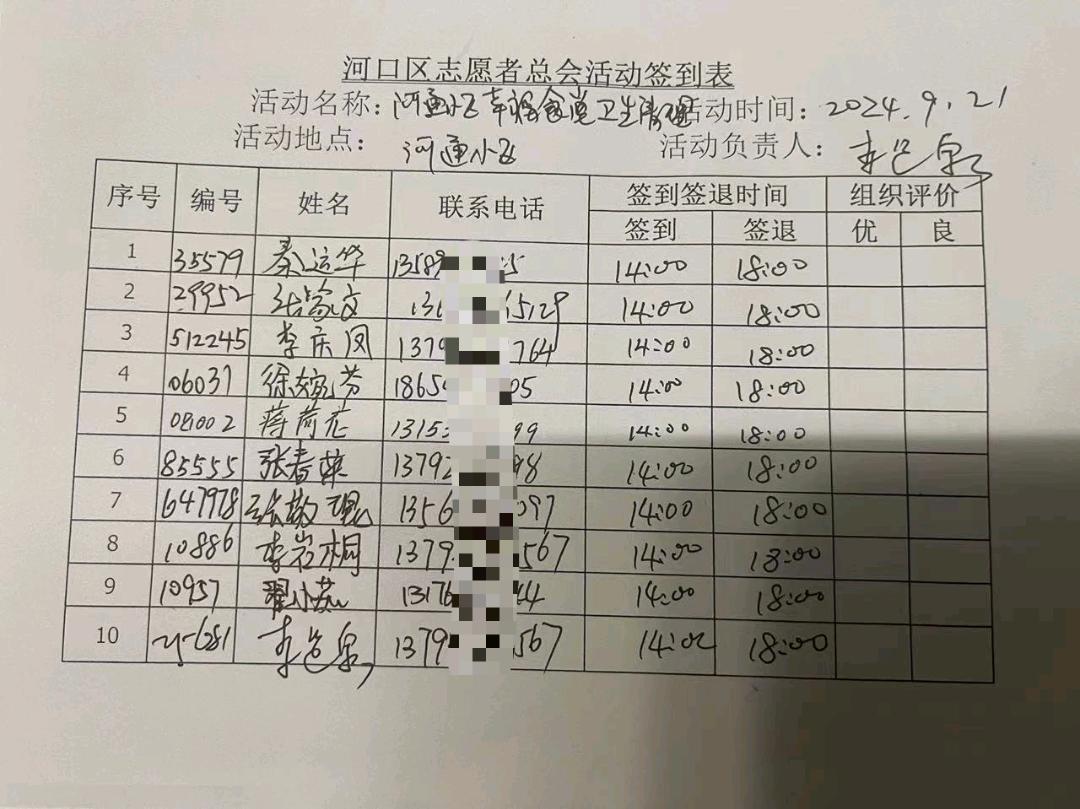 河口区志愿者总会活动签到表
活动名称：河通小区幸福食堂卫生清理 活动时间：2024.9.21
活动地点： 河通小区 活动负责人：
序号 编号 姓名 联系电话 签到签退时间 组织评价
签到 签退 优 良
1 35579 秦运华 13589 5 14:00 18:00
2 29952 13 5129 14:00 18:00
3 512245 李庆凤 1379 764 14:00 18:00
4 06037 徐婉芬 1865 05 14:00 18:00
5 08002 蒋荷花 13153 99 14:00 18:00
6 85555 张春英 13792 98 14:00 18:00
7 647978 张敬 1356 097 14:00 18:00
8 10886 李岩桐 1379 567 14:00 18:00
9 10957 翟小 13176 44 14:00 18:00
10 6281 1379 567 14:00 18:00